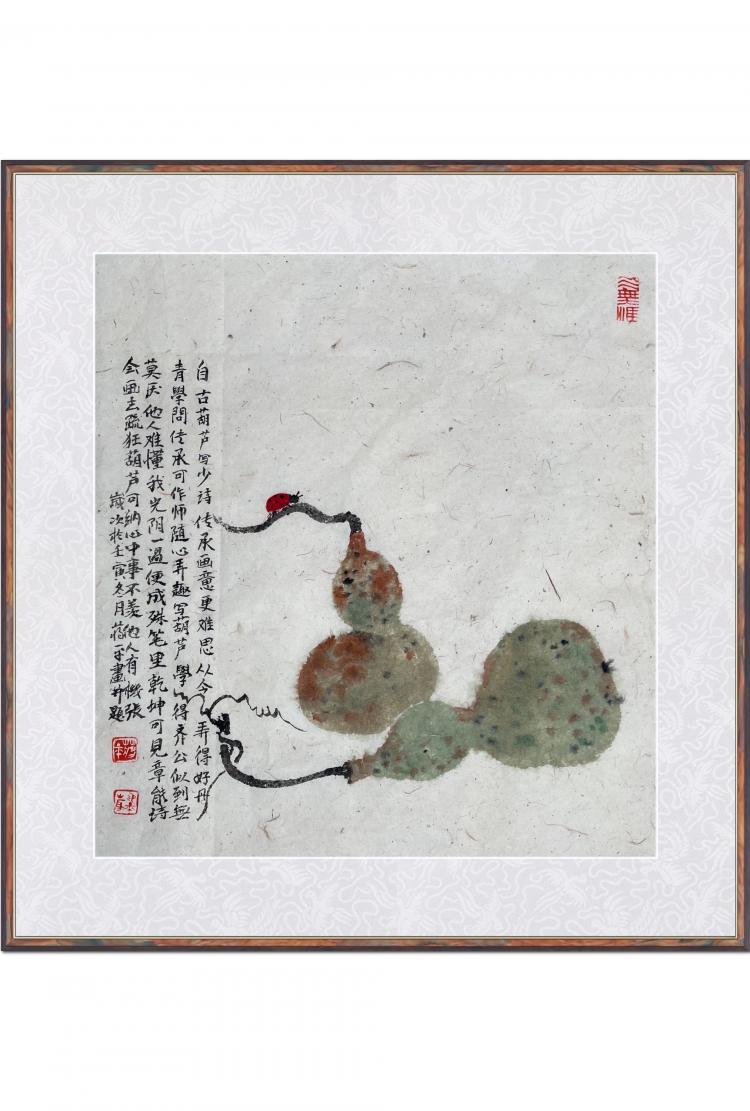 自古葫芦写少诗传承画意更难思从今弄得好丹
青學問传承可作师随心弄趣写葫芦學得齐公似到無
莫厌他人难懂我光阴一過便成殊笔里乾坤可見章能诗
会画去疏狂葫芦可納心中事不羡他人有张
歲次於壬寅冬月蒋平畫并題